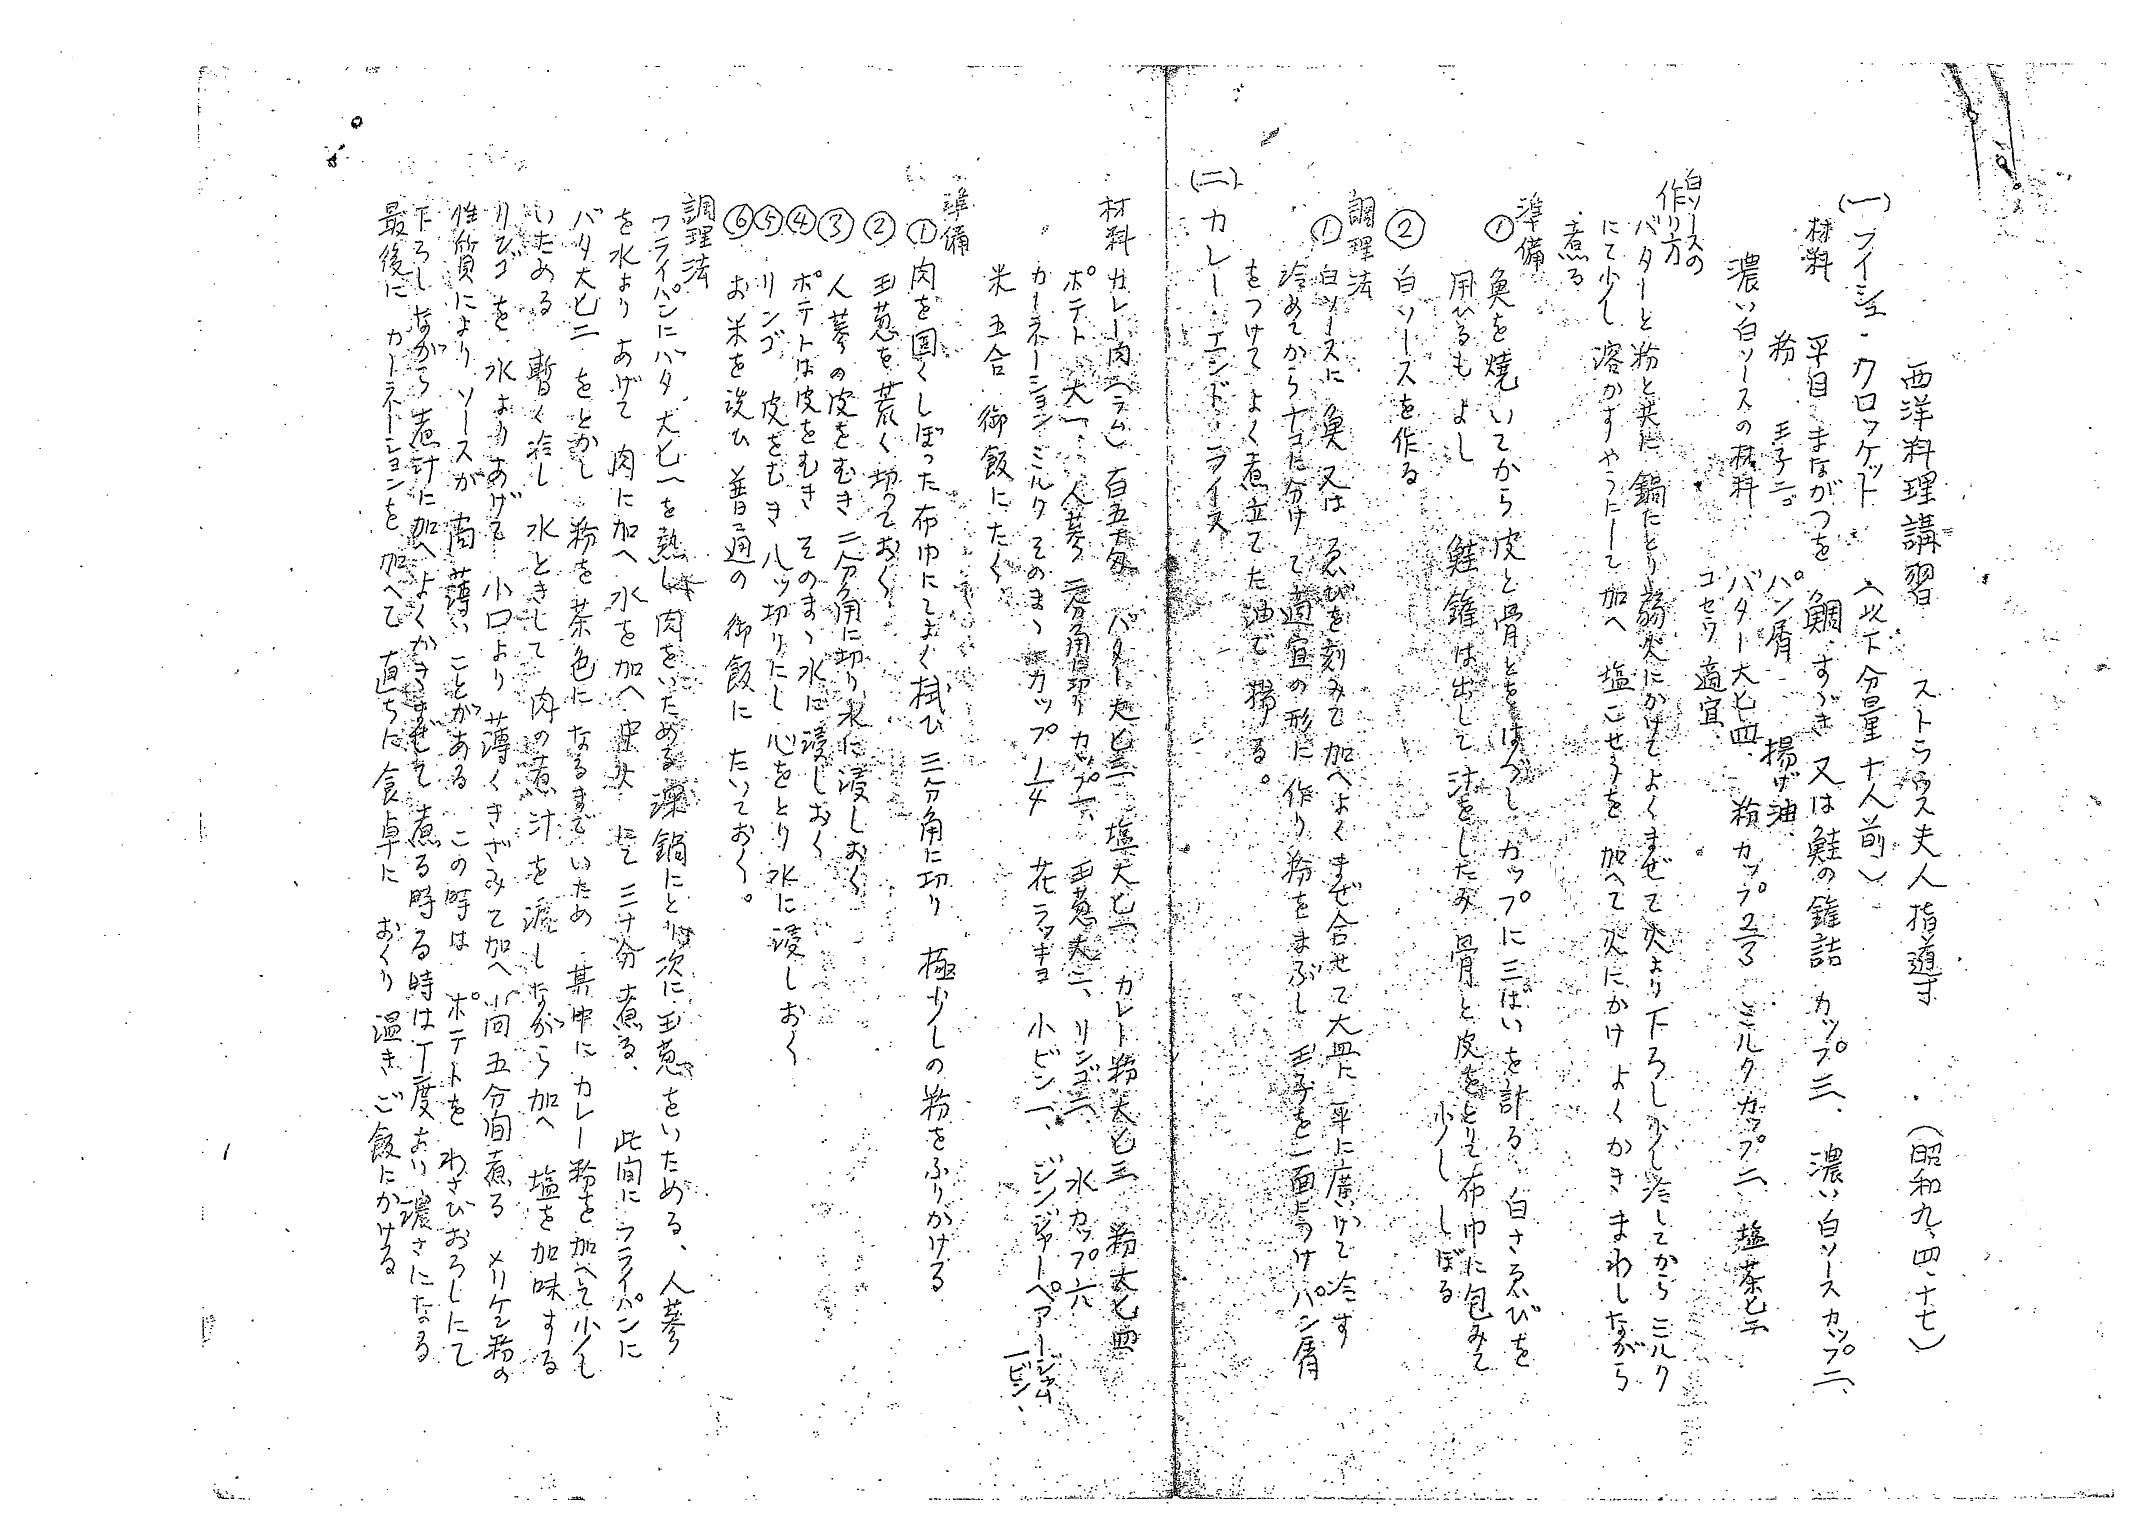 西洋料理講習 ストラウス夫人指導 (昭和九、四、十七)
(一)フイシュ・クロッケット (以下分量十人前)
材料 平目 まながつを 鯛、すゞき 又は鮭の鑵詰 カップ三、濃い白ソースカップ二、
粉 玉子二。 パン屑 揚げ油、
濃い白ソースの材料 バター大匕四、粉カップ2/3 ミルクカップ二、塩茶匕二
コセウ適宜、
白ソースの
作り方
バターと粉と共に鍋にとり弱火にかけてよくまぜて火より下ろし少し冷してからミルク
にて少し溶かすやうにして加へ 塩こせうを加へて火にかけよくかきまわしながら
煮る
準備
① 魚を焼いてから皮と骨とをはづし カップに三ばいを計る 白さゑびを
用ひるもよし 鮭鑵は出して汁をしたみ骨と皮をとりて布巾に包みて
少ししぼる
② 白ソースを作る
調理法
① 白ソースに魚又はゑびを刻みて加へよくまぜ合せて大皿に平に廣げて冷す
冷めてから十コに分けて適宜の形に作り粉をまぶし玉子を一面につけパン屑
をつけてよく煮立てた油で揚る。
(二) カレー・エンド・ライス
材料 カレー肉(ラム)百五十匁 バター大匕三 塩大匕一 カレー粉大匕三 粉大匕四
ポテト大一、人蔘二分角に切りカップ一、玉葱大二、リンゴ二、水カップ六
カーネーションミルクそのまゝカップ1/4 花ラッキョ小ビン一、ジンジャーペアージャム
一ビン、
米五合 御飯にたく
準備
① 肉を固くしぼった布巾にてよく拭ひ三分角に切り 極少しの粉をふりかける
② 玉葱を荒く切っておく
③ 人蔘の皮をむき二分角に切り水に浸しおく
④ ポテトは皮をむきそのまゝ水に浸しおく
⑤ リンゴ 皮をむき八ッ切りにし心をとり水に浸しおく
⑥ お米を洗ひ普通の御飯にたいておく。
調理法
フライパンにバタ大匕一を熱し肉をいためる深鍋にとり次に玉葱をいためる、人蔘
を水よりあげて肉に加へ水を加へ中火にて三十分煮る、此間にフライパンに
バタ大匕二をとかし粉を茶色になるまでいため 其中にカレー粉を加へて少し
いためる 暫く冷し水ときして肉の煮汁を漉しながら加へ 塩を加味する
リンゴを水よりあげて小口より薄くきざみて加へ 五分間煮る メリケン粉の
性質によりソースが尚薄いことがある この時はポテトをわさびおろしにて
下ろしながら煮汁に加へよくかきまぜて煮る時る時は丁度より濃さになる
最後にカーネーションを加へて直ちに食卓におくり温きご飯にかける